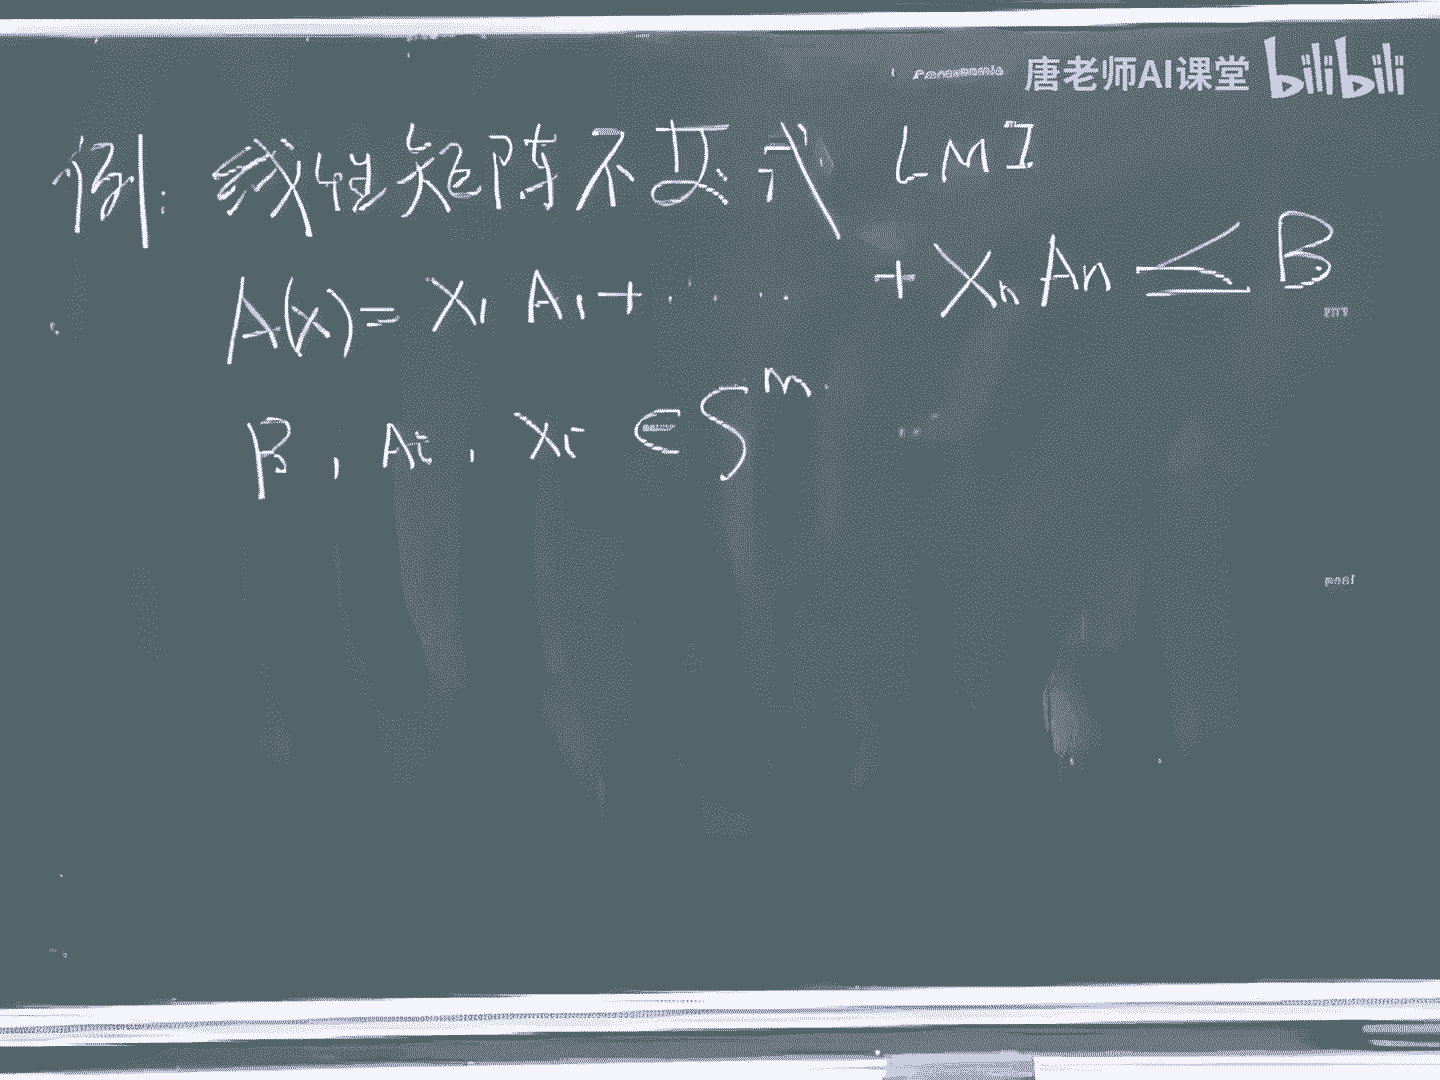 唐老师AI课堂 bilibili
例: 线性矩阵不等式 LMI
A(x)= x₁ A₁ + ···· + xₙ Aₙ ≤ B
B , Ai , xi ∈ Sᵐ